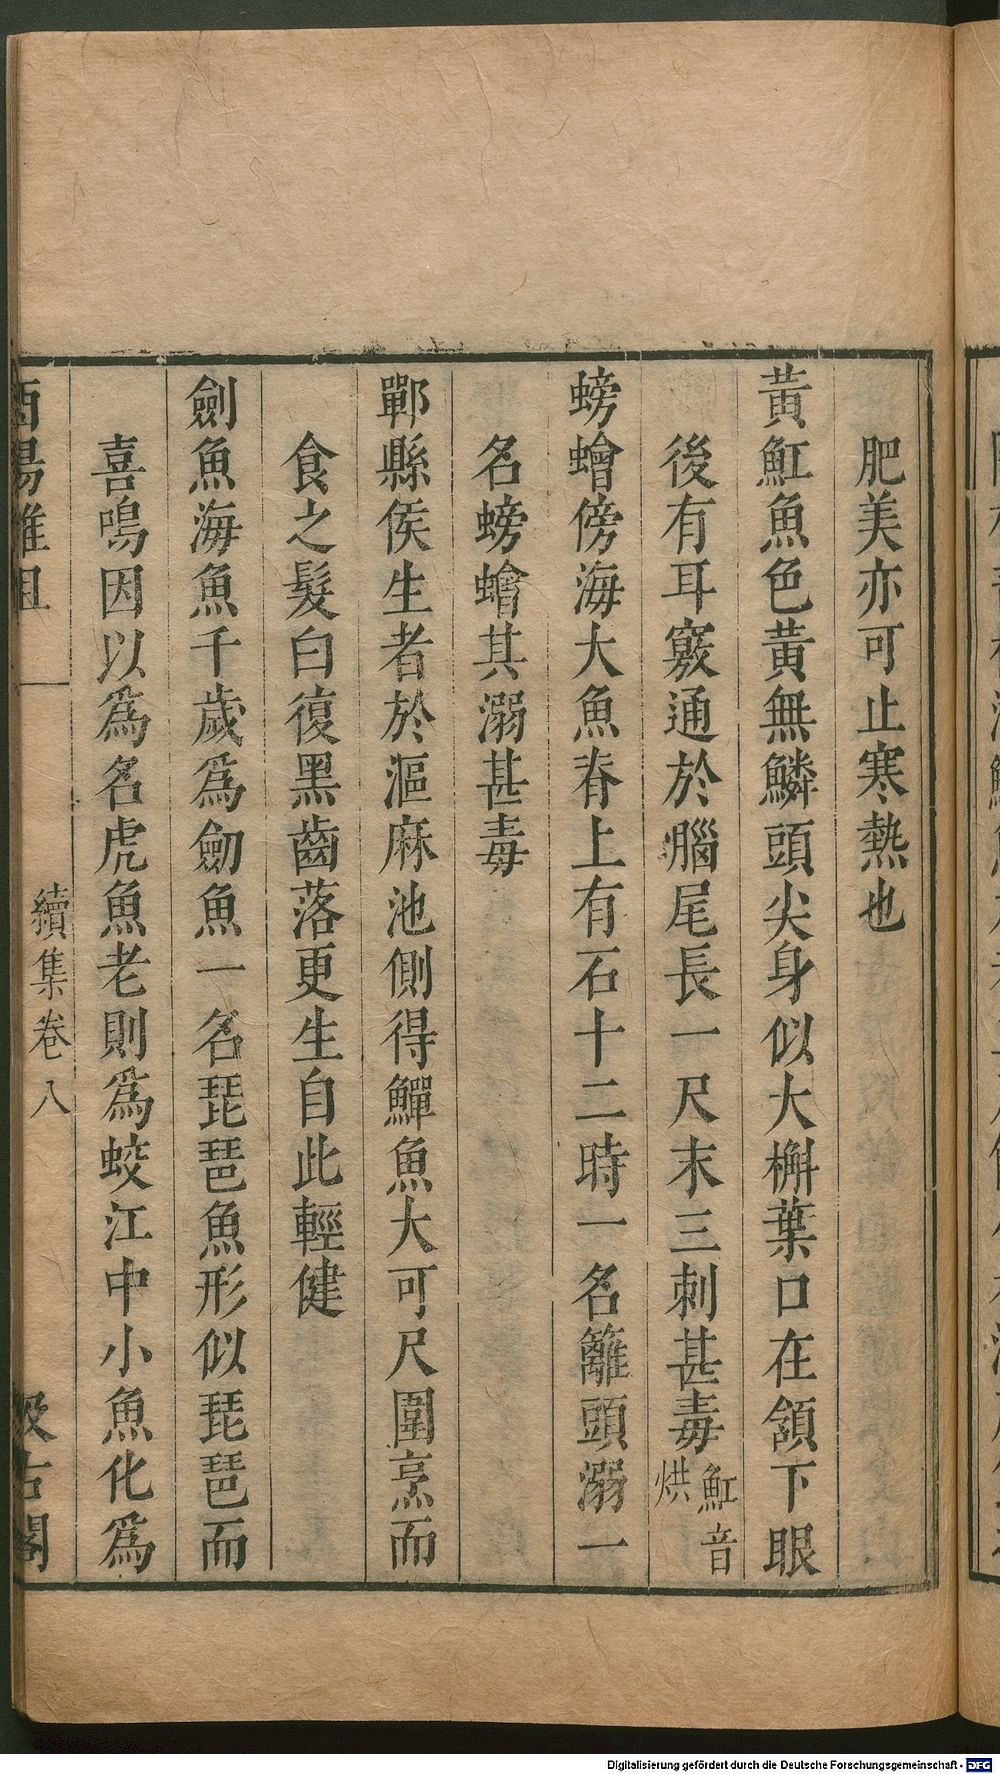 肥美亦可止寒熱也
黃魟魚色黃無鱗頭尖身似大槲葉口在頷下眼
後有耳竅通於腦尾長一尺末三刺甚毒魟音烘
螃䗤傍海大魚脊上有石十二時一名籬頭溺一
名螃䗤其溺甚毒
鄲縣侯生者於漚麻池側得鱓魚大可尺圍烹而
食之髮白復黑齒落更生自此輕健
劍魚海魚千歲爲劒魚一名琵琶魚形似琵琶而
喜鳴因以爲名虎魚老則爲蛟江中小魚化爲
酉陽雜俎 續集卷八 汲古閣
Digitalisierung gefördert durch die Deutsche Forschungsgemeinschaft - DFG